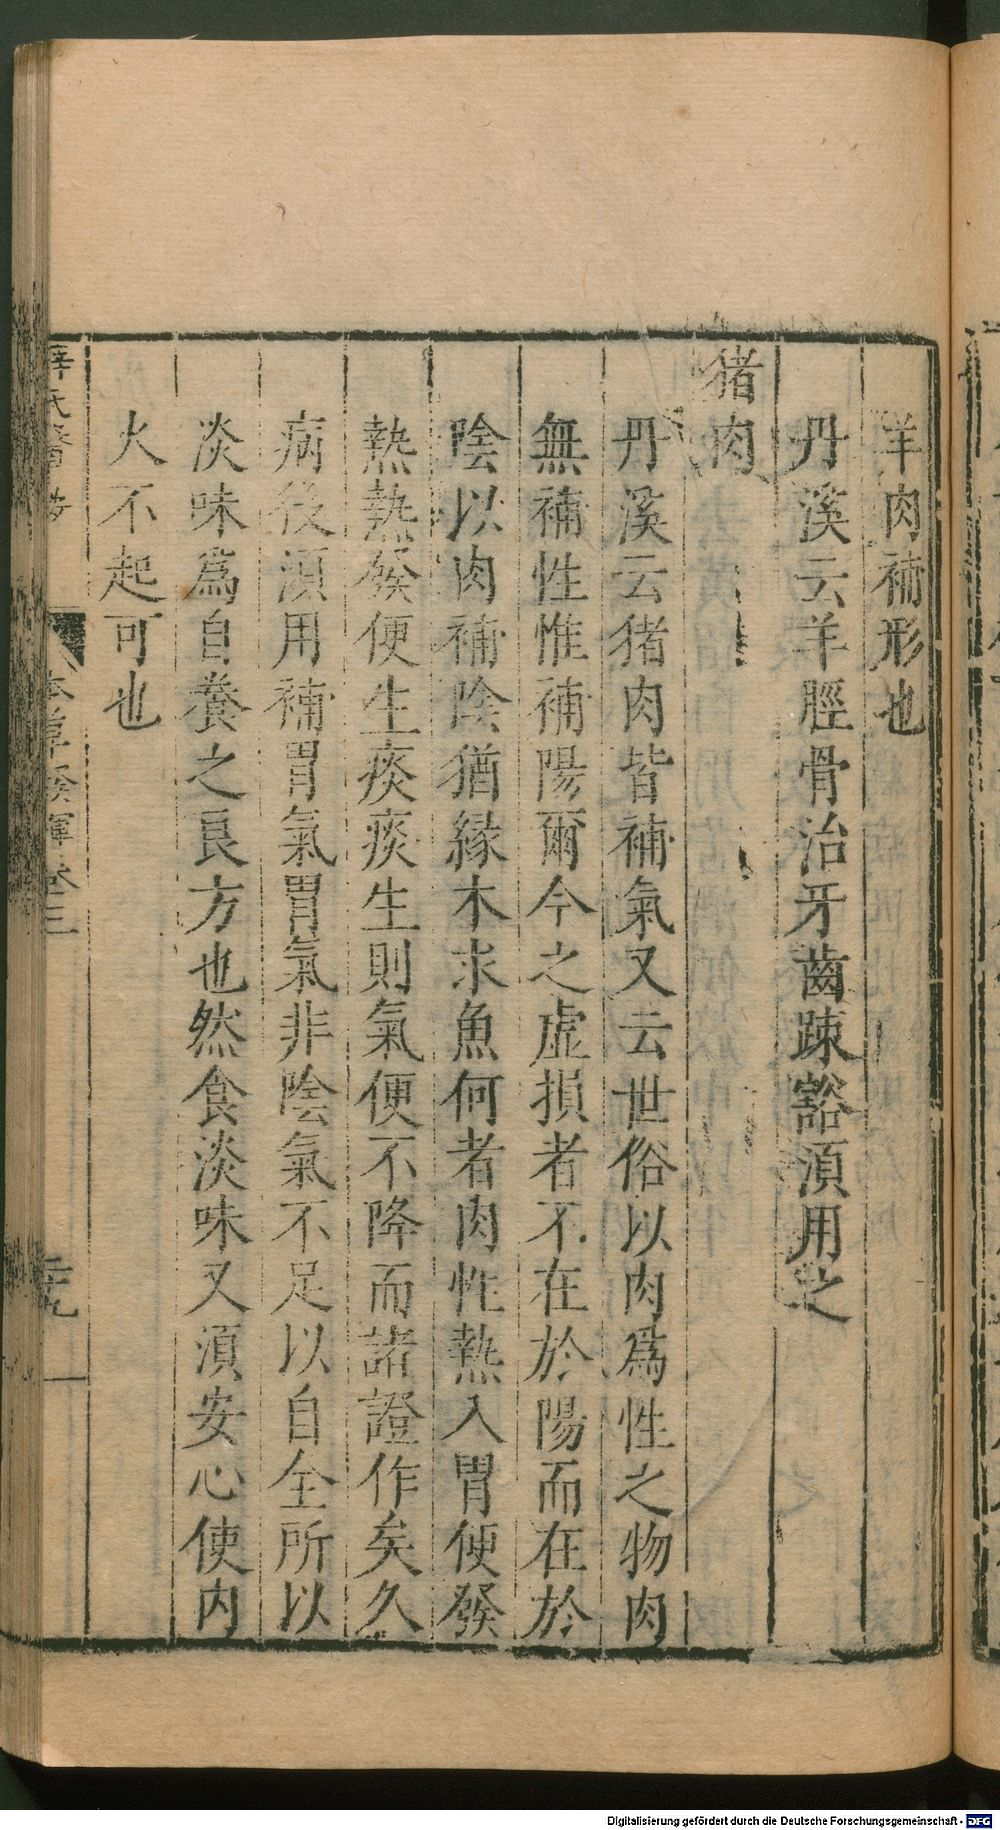 羊肉補形也
丹溪云羊脛骨治牙齒踈豁湏用之
猪肉
丹溪云猪肉皆補氣又云世俗以肉爲性之物肉
無補性惟補陽爾今之虛損者不在於陽而在於
陰以肉補陰猶緣木求魚何者肉性熱入胃便發
熱熱發便生痰痰生則氣便不降而諸證作矣久
病後湏用補胃氣胃氣非陰氣不足以自全所以
淡味爲自養之良方也然食淡味又湏安心使内
火不起可也
本草發揮卷三
Digitalisierung gefördert durch die Deutsche Forschungsgemeinschaft - DFG